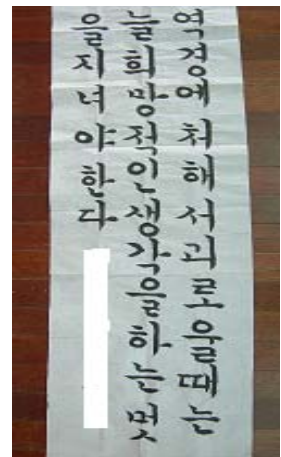 역경에처해서괴로울때는
늘희망적인생각을하는멋
을지녀야한다